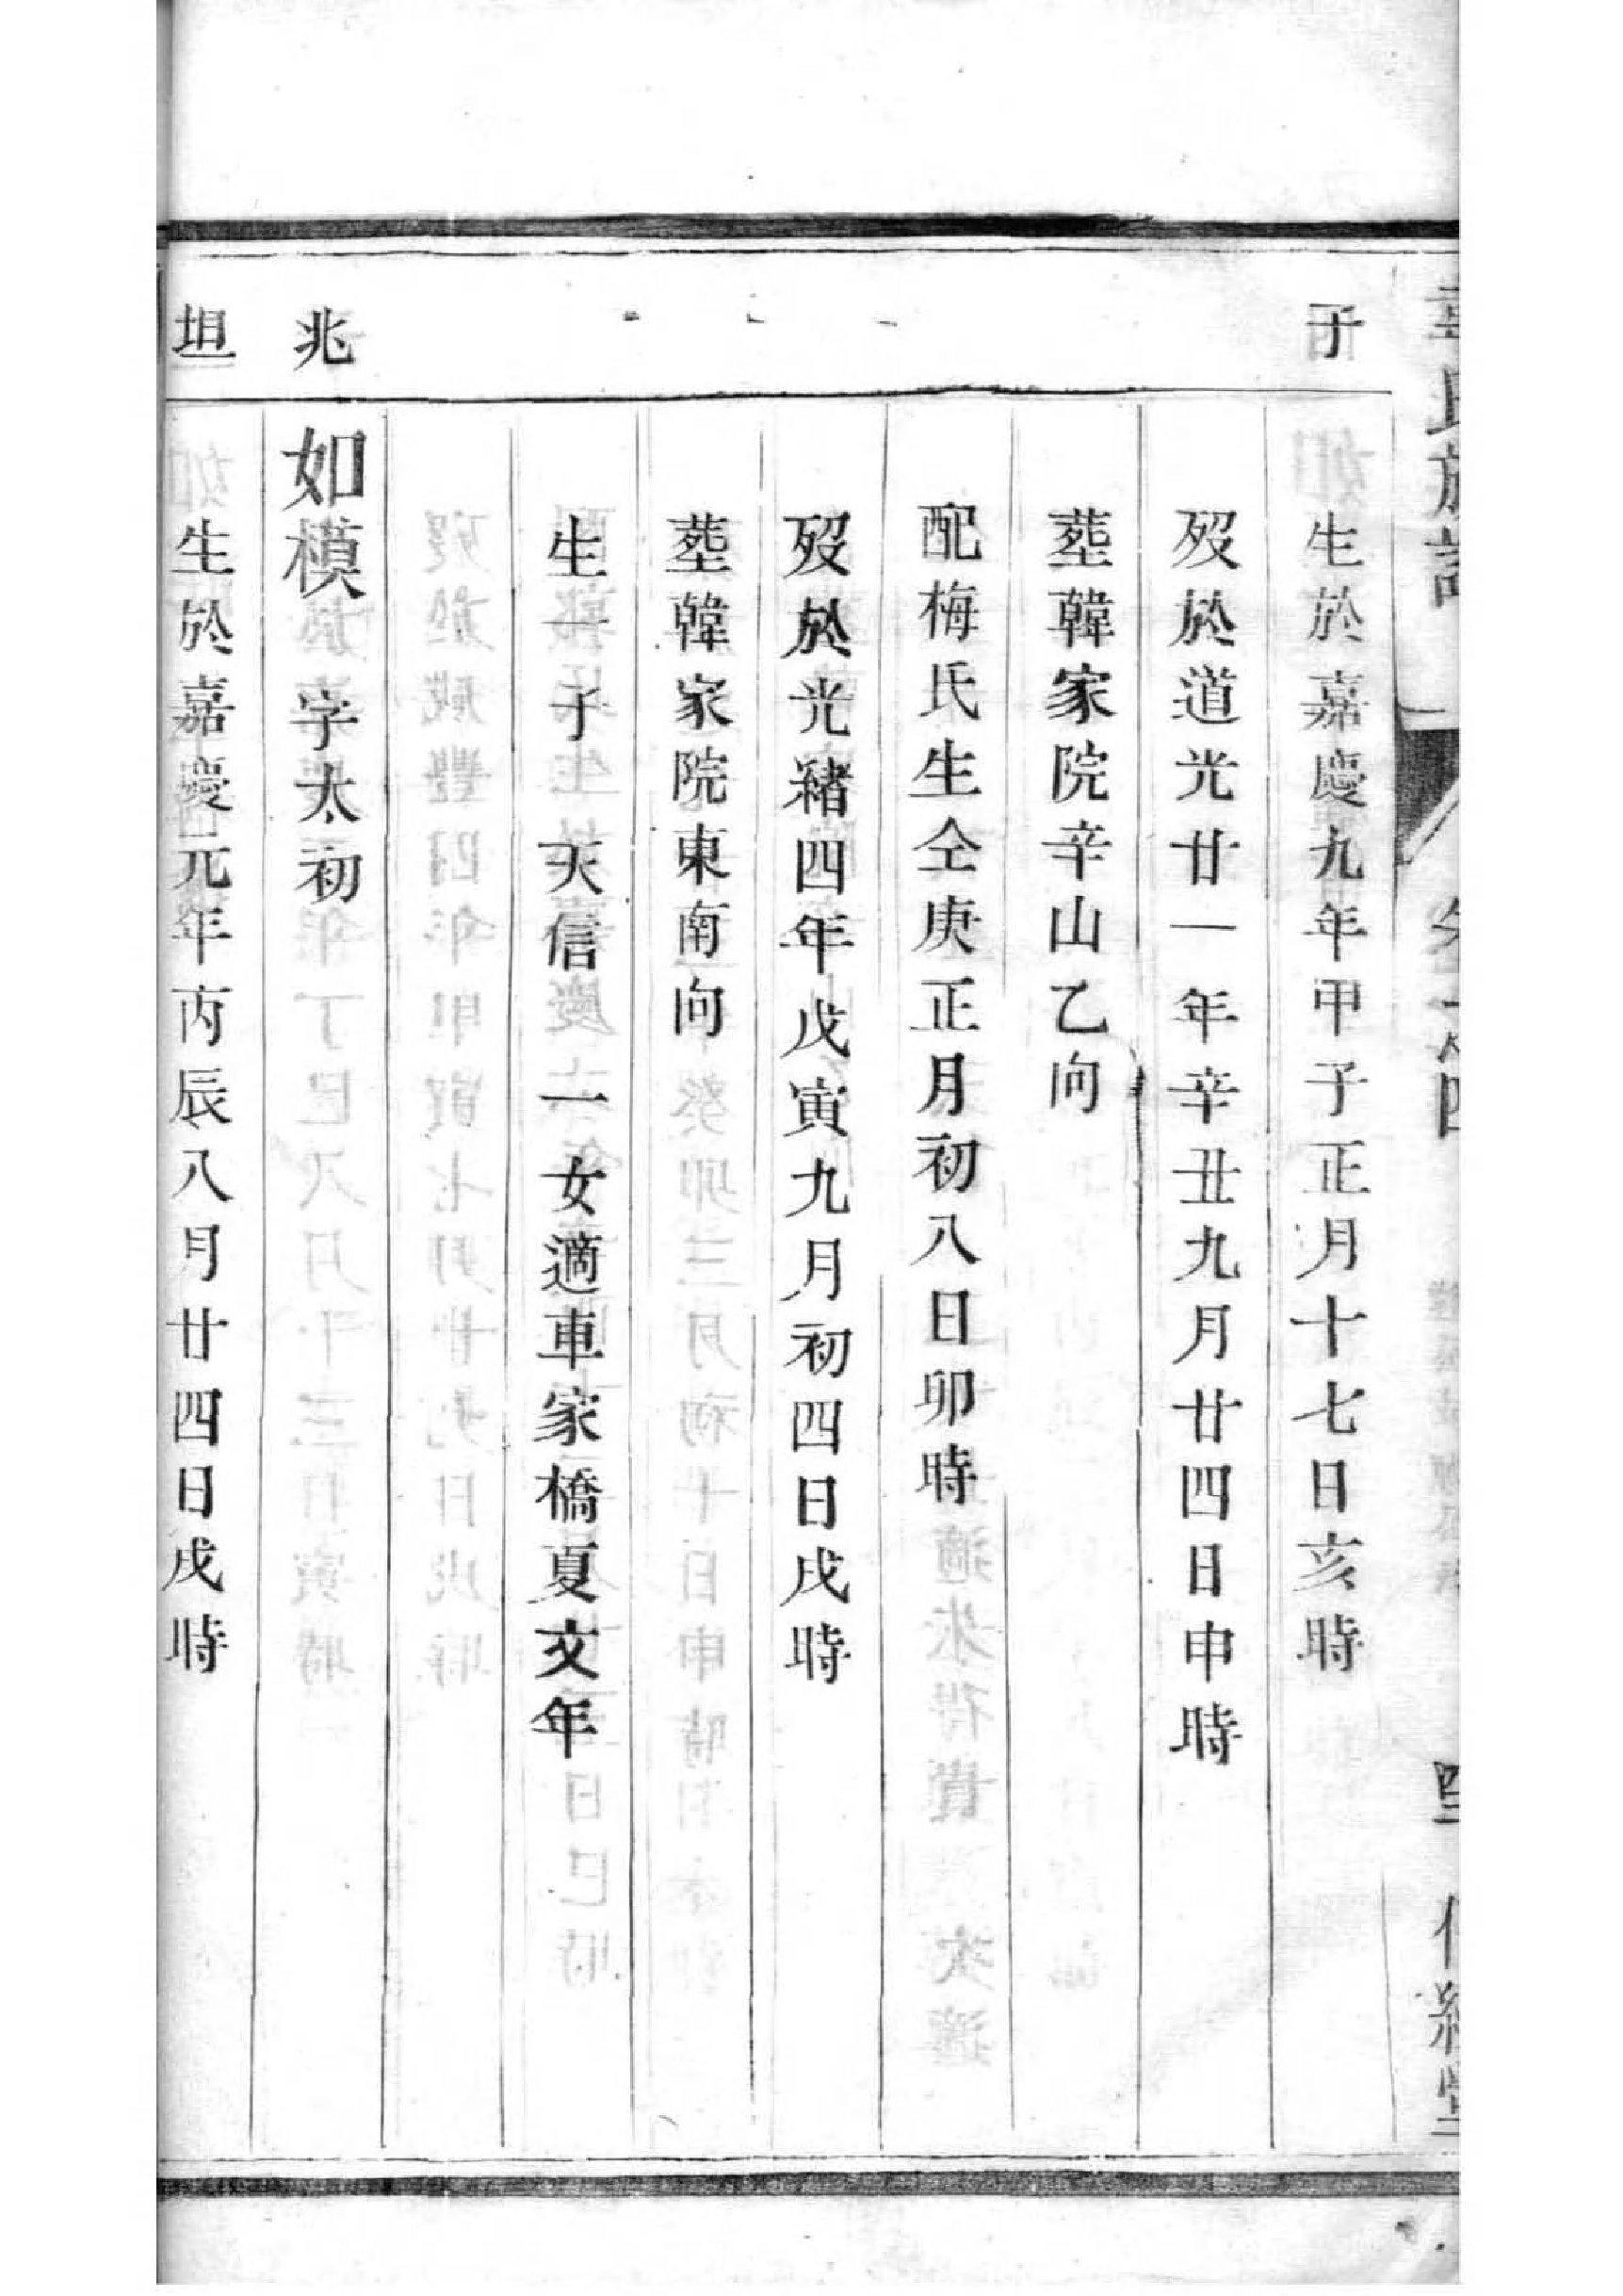 氏族譜 卷 四
子
生於嘉慶九年甲子正月十七日亥時
歿於道光廿一年辛丑九月廿四日申時
葬韓家院辛山乙向
配梅氏生仝庚正月初八日卯時
歿於光緒四年戊寅九月初四日戌時
葬韓家院東南向
生一子 天信 一女適車家橋夏文年
兆
如模 字太初
坦
生於嘉慶元年丙辰八月廿四日戌時